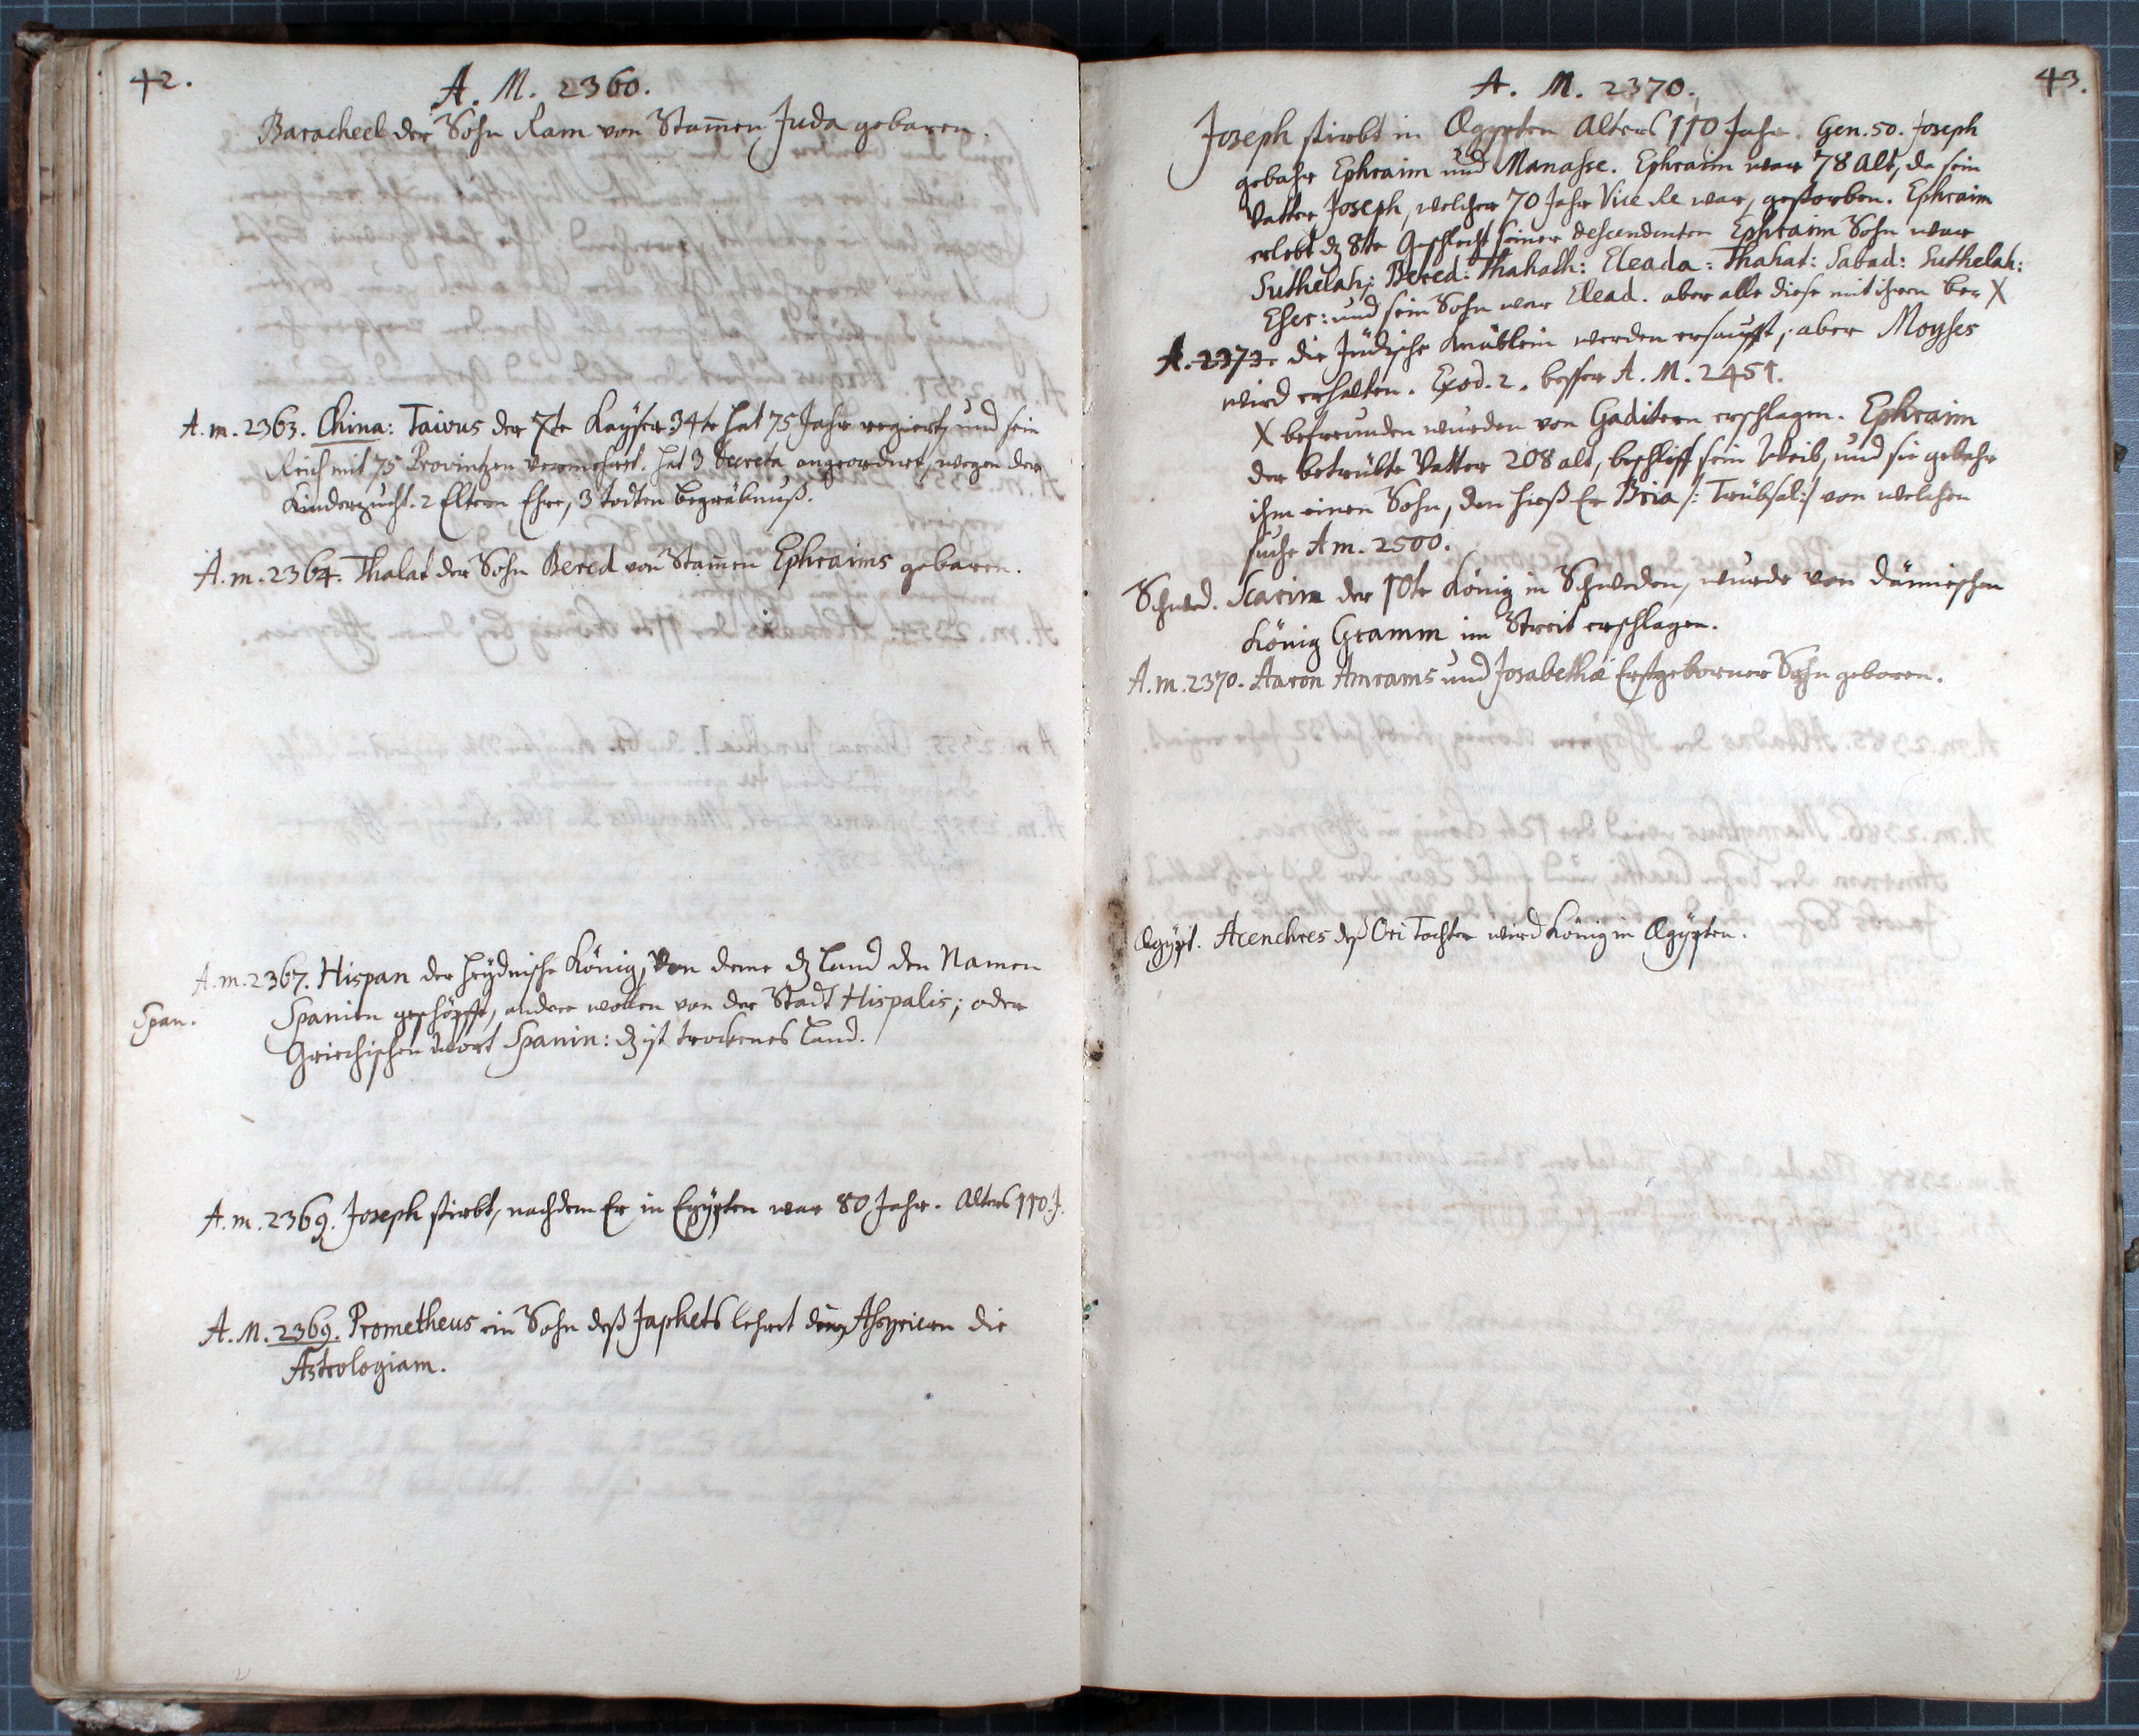 42.
A. M. 2360.
Baracheel der Sohn Ram von Stam̄en Juda geboren.
A. m. 2363. China: Taivus der 7te Kayser 34te hat 75 Jahr regiert, und sein
Reich mit 75 Provintzen vermehret. hat 3 Decreta angeordnet, wegen der
Kinderzucht. 2 Eltern Ehre, 3 todten begräbnuß.
A. m. 2364. Thalat der Sohn Bered von Stam̄en Ephraims geboren.
A. m. 2367. Hispan der heydnische König, von deme dz Land den Namen
Span.
Spanien geschöpfft, andere wollen von der Stadt Hispalis; oder
Griechischen wort Spanin: dz ist trockenes Land.
A. m. 2369. Joseph stirbt, nachdem Er in Egÿpten war 80 Jahr. Alters 110. J.
A. M. 2369. Prometheus ein Sohn deß Japhets lehrt den Assyriern die
Astrologiam.
43.
A. M. 2370.
Joseph stirbt in Ægypten Alters 110 Jahr. Gen. 50. Joseph
gebahr Ephraim und Manasse. Ephraim war 78 alt, da sein
Vatter Joseph, welcher 70 Jahr Vice Re war, gestorben. Ephraim
erlebt dz 8te Geschlecht seiner descendenten Ephraim Sohn war
Suthelah: Bered: Thahath: Eleada: Thahat: Sabad: Suthelah:
Eser: und sein Sohn war Elead. aber alle diese mit ihren be- X
A. 2373. die Jüdische Knäblein werden ersäufft, aber Moyses
wird erhalten. Exod. 2. besser A. M. 2451.
X befreunden wurden von Gaditern erschlagen. Ephraim
der betrübte Vatter 208 alt, beschlieff sein Weib, und sie gebahr
ihm einen Sohn, den hieß Er Bria /: Trübsal :/ von welchen
suche A m. 2500.
Schwed. Scarim der 10te König in Schweden, wurde von dänischen
König Gramm im Streit erschlagen.
A. m. 2370. Aaron Amrams und Josabethæ Erstgeborner Sohn geboren.
Ægÿpt. Acenchres deß Ori Tochter wird König in Ægÿpten.